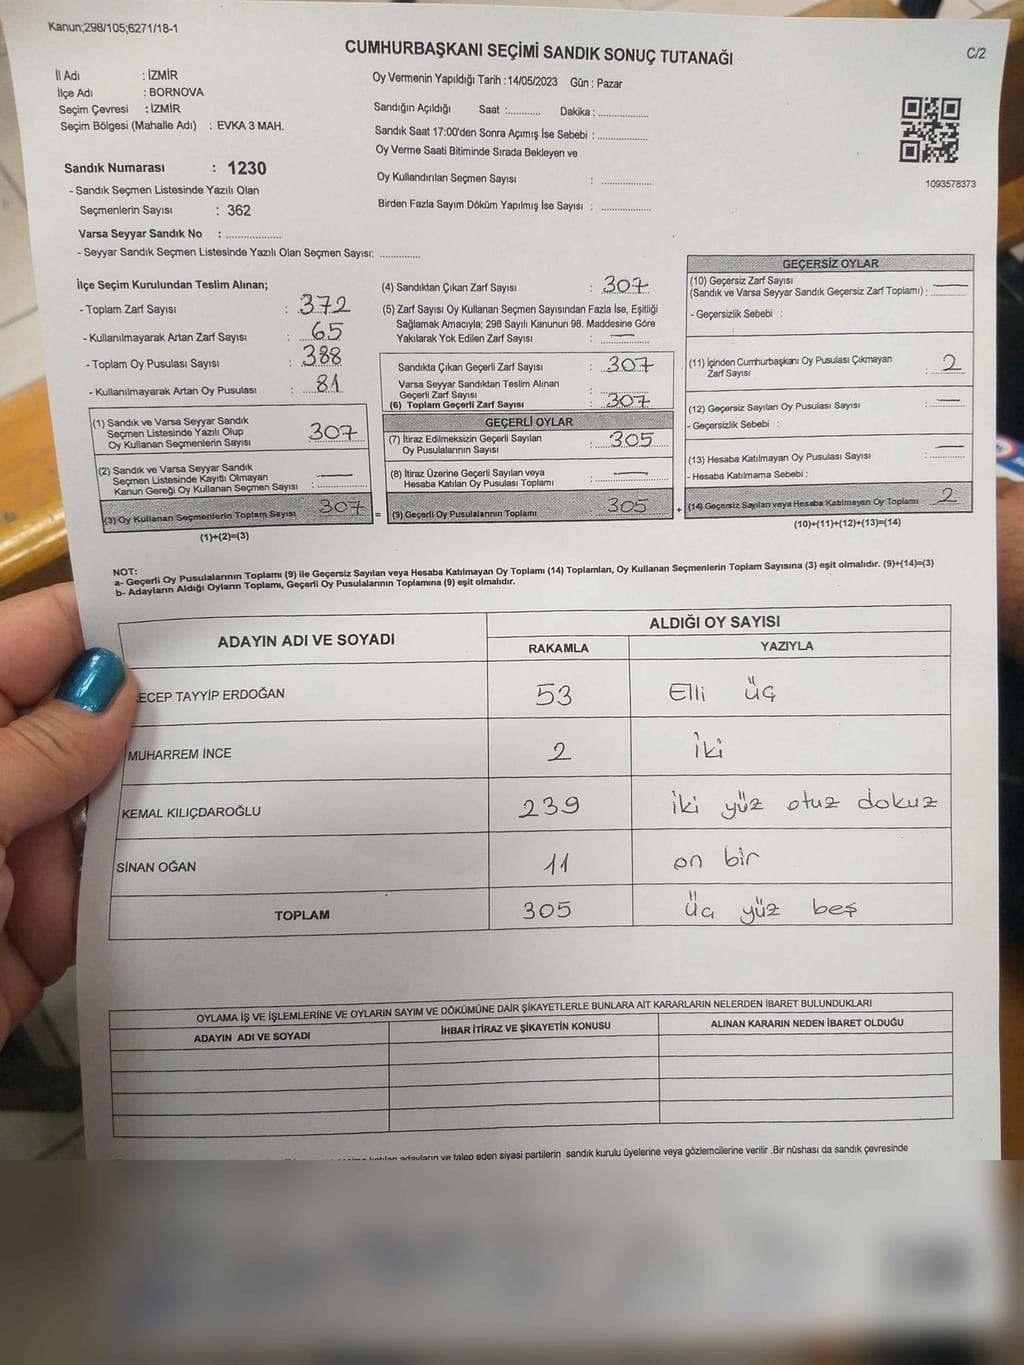 Kanun;298/105;6271/18-1
CUMHURBAŞKANI SEÇİMİ SANDIK SONUÇ TUTANAĞI
C/2
İl Adı : İZMİR
İlçe Adı : BORNOVA
Seçim Çevresi : İZMİR
Seçim Bölgesi (Mahalle Adı) : EVKA 3 MAH.
Sandık Numarası : 1230
- Sandık Seçmen Listesinde Yazılı Olan
Seçmenlerin Sayısı : 362
Varsa Seyyar Sandık No : ..................
- Seyyar Sandık Seçmen Listesinde Yazılı Olan Seçmen Sayısı: .............
Oy Vermenin Yapıldığı Tarih : 14/05/2023 Gün : Pazar
Sandığın Açıldığı Saat :............ Dakika : ................
Sandık Saat 17:00'den Sonra Açımış İse Sebebi : ................
Oy Verme Saati Bitiminde Sırada Bekleyen ve
Oy Kullandırılan Seçmen Sayısı : ................
Birden Fazla Sayım Döküm Yapılmış İse Sayısı : ................
1093578373
İlçe Seçim Kurulundan Teslim Alınan;
- Toplam Zarf Sayısı : 372
- Kullanılmayarak Artan Zarf Sayısı : 65
- Toplam Oy Pusulası Sayısı : 388
- Kullanılmayarak Artan Oy Pusulası : 81
(1) Sandık ve Varsa Seyyar Sandık
Seçmen Listesinde Yazılı Olup
Oy Kullanan Seçmenlerin Sayısı 307
(2) Sandık ve Varsa Seyyar Sandık
Seçmen Listesinde Kayıtlı Olmayan
Kanun Gereği Oy Kullanan Seçmen Sayısı : —
(3) Oy Kullanan Seçmenlerin Toplam Sayısı 307 =
(1)+(2)=(3)
(4) Sandıktan Çıkan Zarf Sayısı : 307
(5) Zarf Sayısı Oy Kullanan Seçmen Sayısından Fazla İse, Eşitliği
Sağlamak Amacıyla; 298 Sayılı Kanunun 98. Maddesine Göre
Yakılarak Yok Edilen Zarf Sayısı : —
Sandıkta Çıkan Geçerli Zarf Sayısı : 307
Varsa Seyyar Sandıktan Teslim Alınan
Geçerli Zarf Sayısı :
(6) Toplam Geçerli Zarf Sayısı : 307
GEÇERLİ OYLAR
(7) İtiraz Edilmeksizin Geçerli Sayılan
Oy Pusulalarının Sayısı : 305
(8) İtiraz Üzerine Geçerli Sayılan veya
Hesaba Katılan Oy Pusulası Toplamı : —
(9) Geçerli Oy Pusulalarının Toplamı 305 +
GEÇERSİZ OYLAR
(10) Geçersiz Zarf Sayısı
(Sandık ve Varsa Seyyar Sandık Geçersiz Zarf Toplamı) : —
- Geçersizlik Sebebi :
(11) İçinden Cumhurbaşkanı Oy Pusulası Çıkmayan
Zarf Sayısı : 2
(12) Geçersiz Sayılan Oy Pusulası Sayısı : —
- Geçersizlik Sebebi :
(13) Hesaba Katılmayan Oy Pusulası Sayısı : —
- Hesaba Katılmama Sebebi :
(14) Geçersiz Sayılan veya Hesaba Katılmayan Oy Toplamı 2
(10)+(11)+(12)+(13)=(14)
NOT:
a- Geçerli Oy Pusulalarının Toplamı (9) ile Geçersiz Sayılan veya Hesaba Katılmayan Oy Toplamı (14) Toplamları, Oy Kullanan Seçmenlerin Toplam Sayısına (3) eşit olmalıdır. (9)+(14)=(3)
b- Adayların Aldığı Oyların Toplamı, Geçerli Oy Pusulalarının Toplamına (9) eşit olmalıdır.
ADAYIN ADI VE SOYADI
ALDIĞI OY SAYISI
RAKAMLA YAZIYLA
ECEP TAYYİP ERDOĞAN 53 Elli üç
MUHARREM İNCE 2 iki
KEMAL KILIÇDAROĞLU 239 iki yüz otuz dokuz
SİNAN OĞAN 11 on bir
TOPLAM 305 üç yüz beş
OYLAMA İŞ VE İŞLEMLERİNE VE OYLARIN SAYIM VE DÖKÜMÜNE DAİR ŞİKAYETLERLE BUNLARA AİT KARARLARIN NELERDEN İBARET BULUNDUKLARI
ADAYIN ADI VE SOYADI İHBAR İTİRAZ VE ŞİKAYETİN KONUSU ALINAN KARARIN NEDEN İBARET OLDUĞU
adayların ve talep eden siyasi partilerin sandık kurulu üyelerine veya gözlemcilerine verilir .Bir nüshası da sandık çevresinde